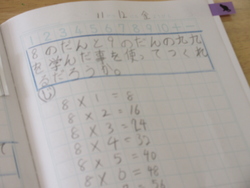 11-12 金
8のだんと9のだんの九九
を学んだ事を使ってつくれ
るだろうか。
8 × 1 = 8
8 × 2 = 16
8 × 3 = 24
8 × 4 = 32
8 × 5 = 40
8 × 6 = 48
56